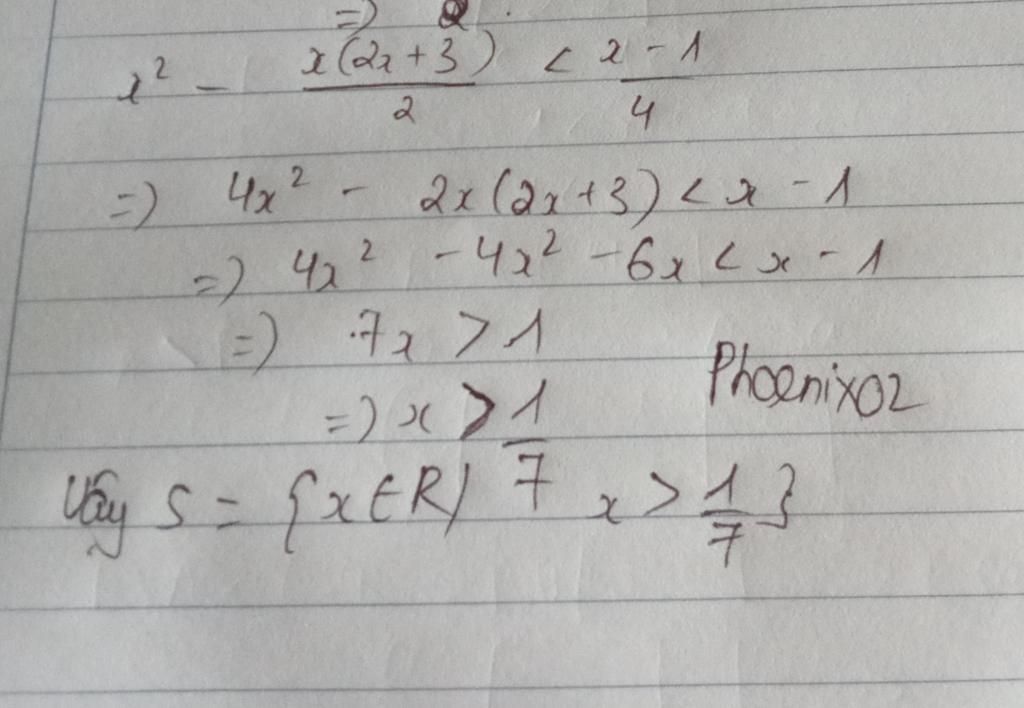 =)
x² - x(2x+3)/2 < x-1/4
=) 4x² - 2x(2x+3) < x - 1
=) 4x² - 4x² - 6x < x - 1
=) 7x > 1
=) x > 1/7
Phoenix02
Vậy S = {x ∈ R/ x > 1/7}